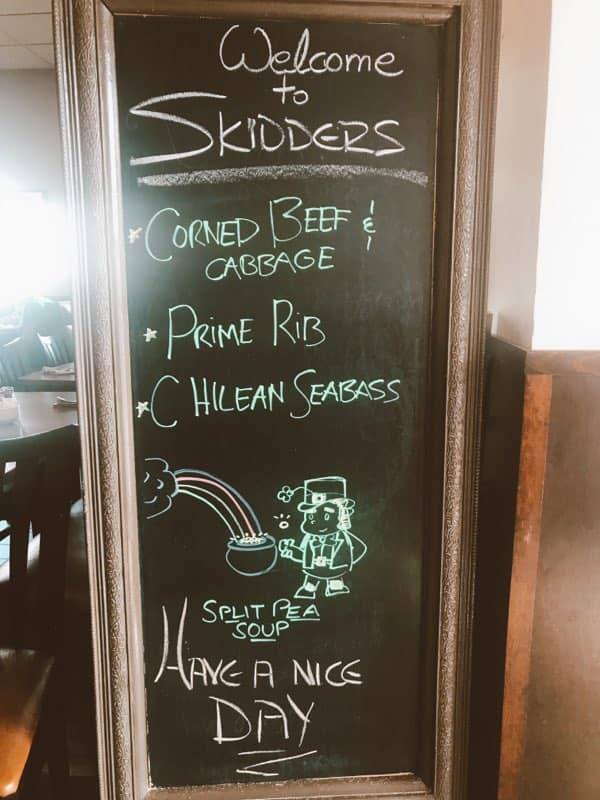 Welcome
to
SKIDDERS
* CORNED BEEF &
CABBAGE
* PRIME RIB
* CHILEAN SEABASS
SPLIT PEA
SOUP
HAVE A NICE
DAY